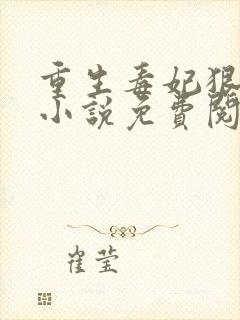 重生毒妃狠
小說免費閱
崔莹